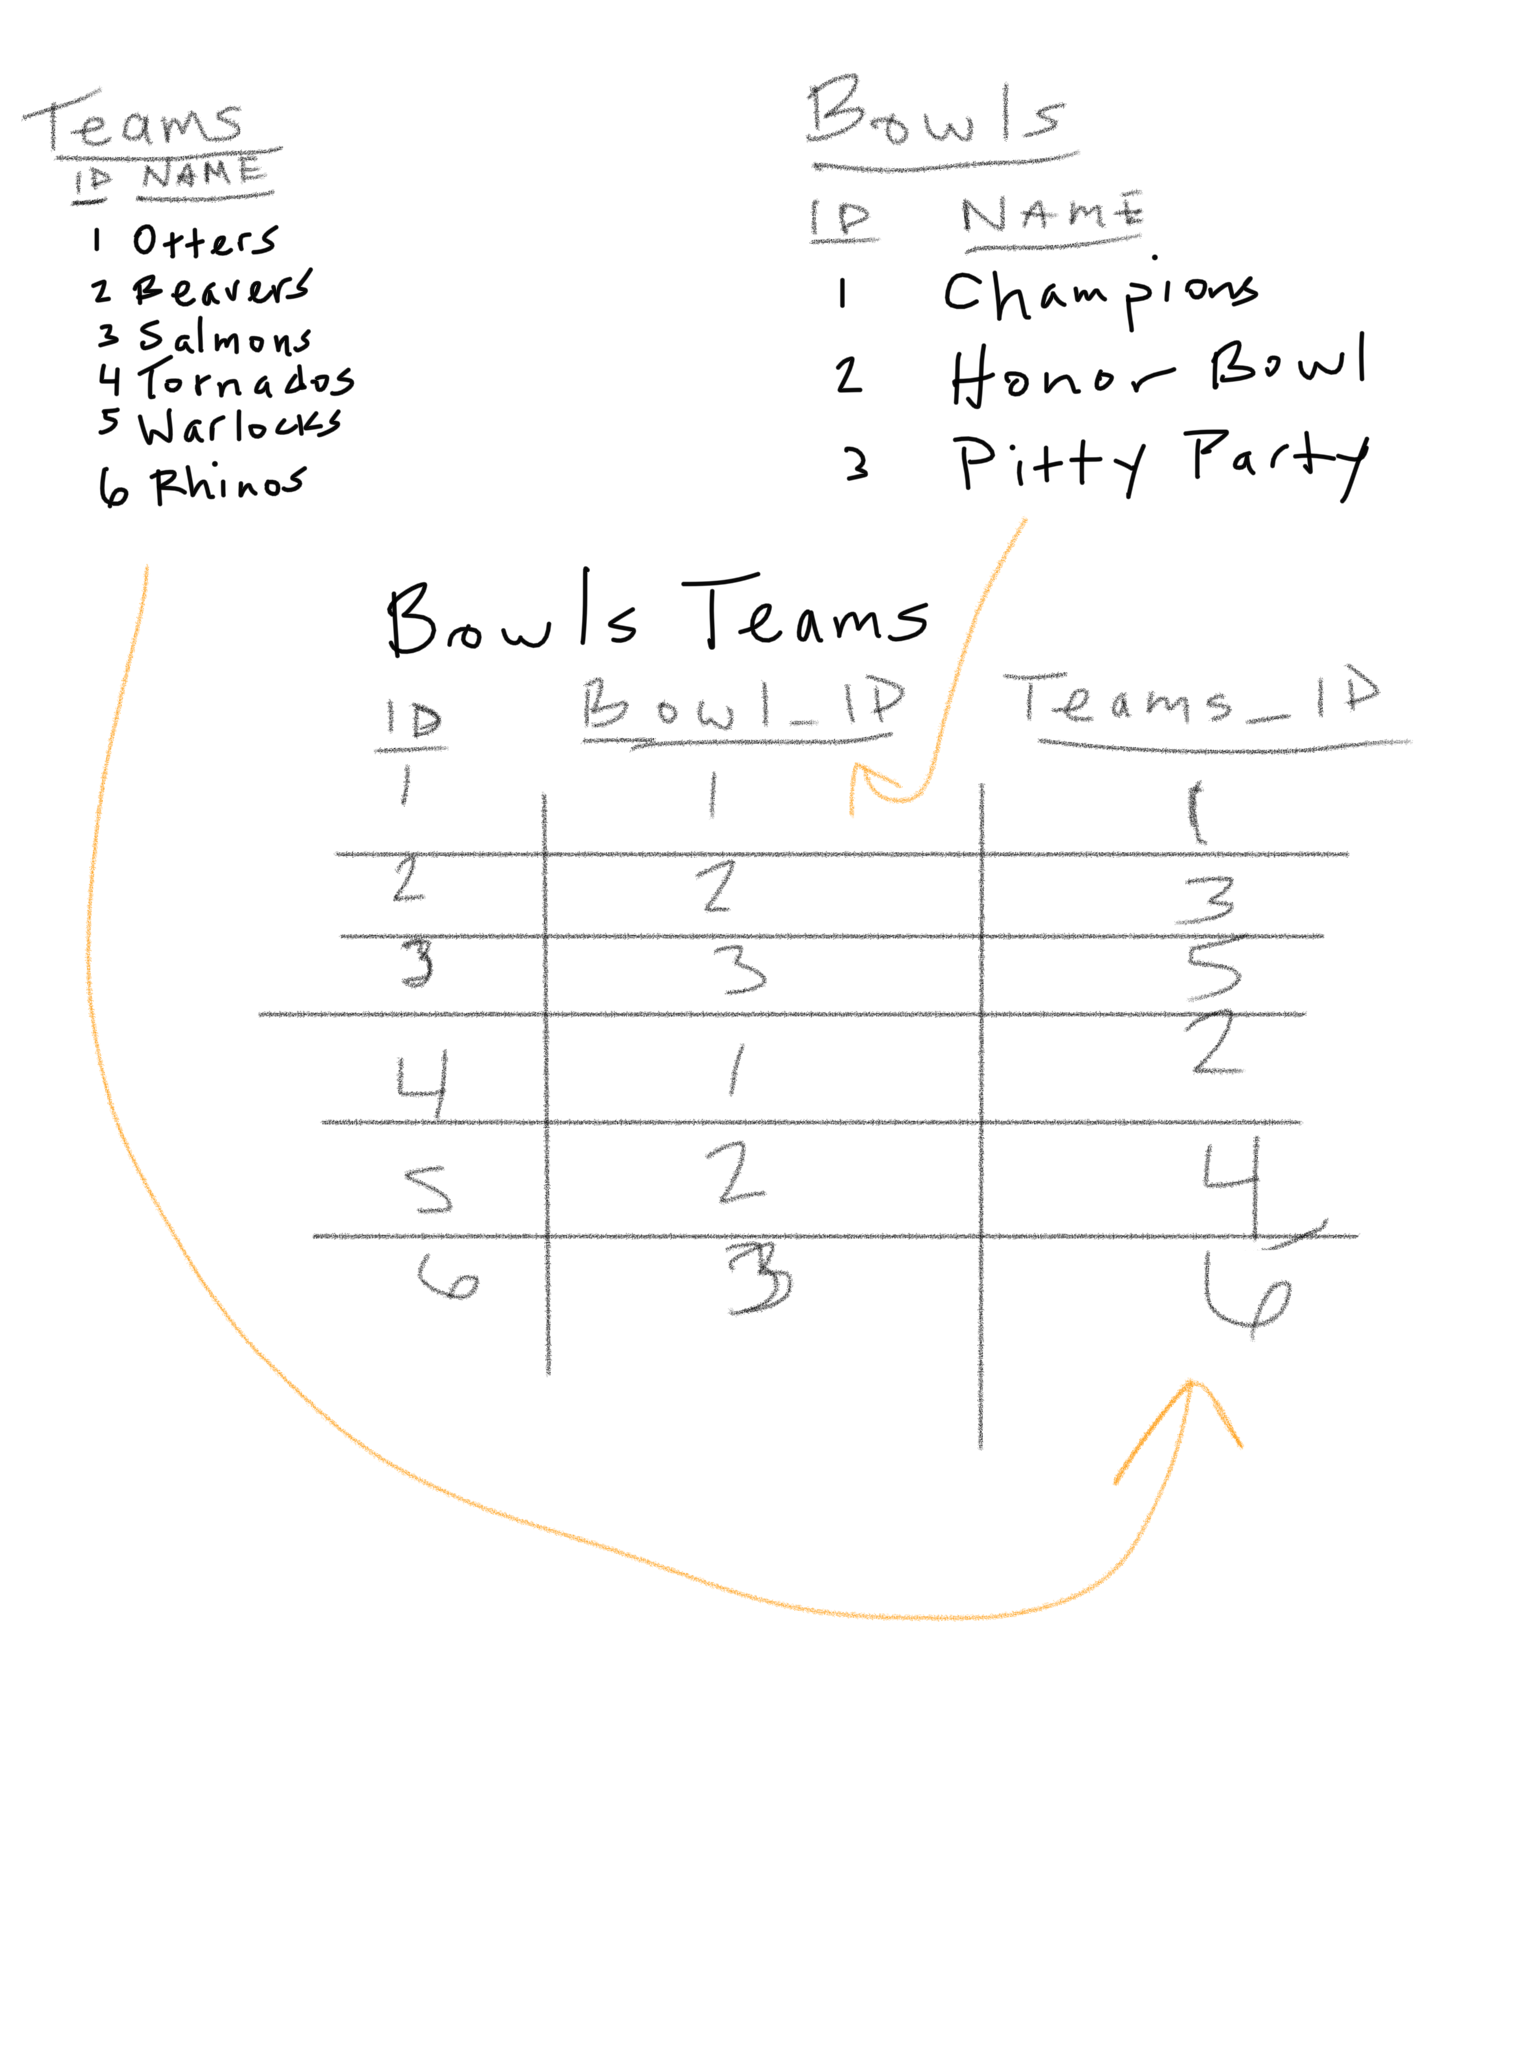 Teams
ID NAME
1 Otters
2 Beavers
3 Salmons
4 Tornados
5 Warlocks
6 Rhinos
Bowls
ID NAME
1 Champions
2 Honor Bowl
3 Pitty Party
Bowls Teams
ID Bowl_ID Teams_ID
1 1 1
2 2 3
3 3 5
4 1 2
5 2 4
6 3 6